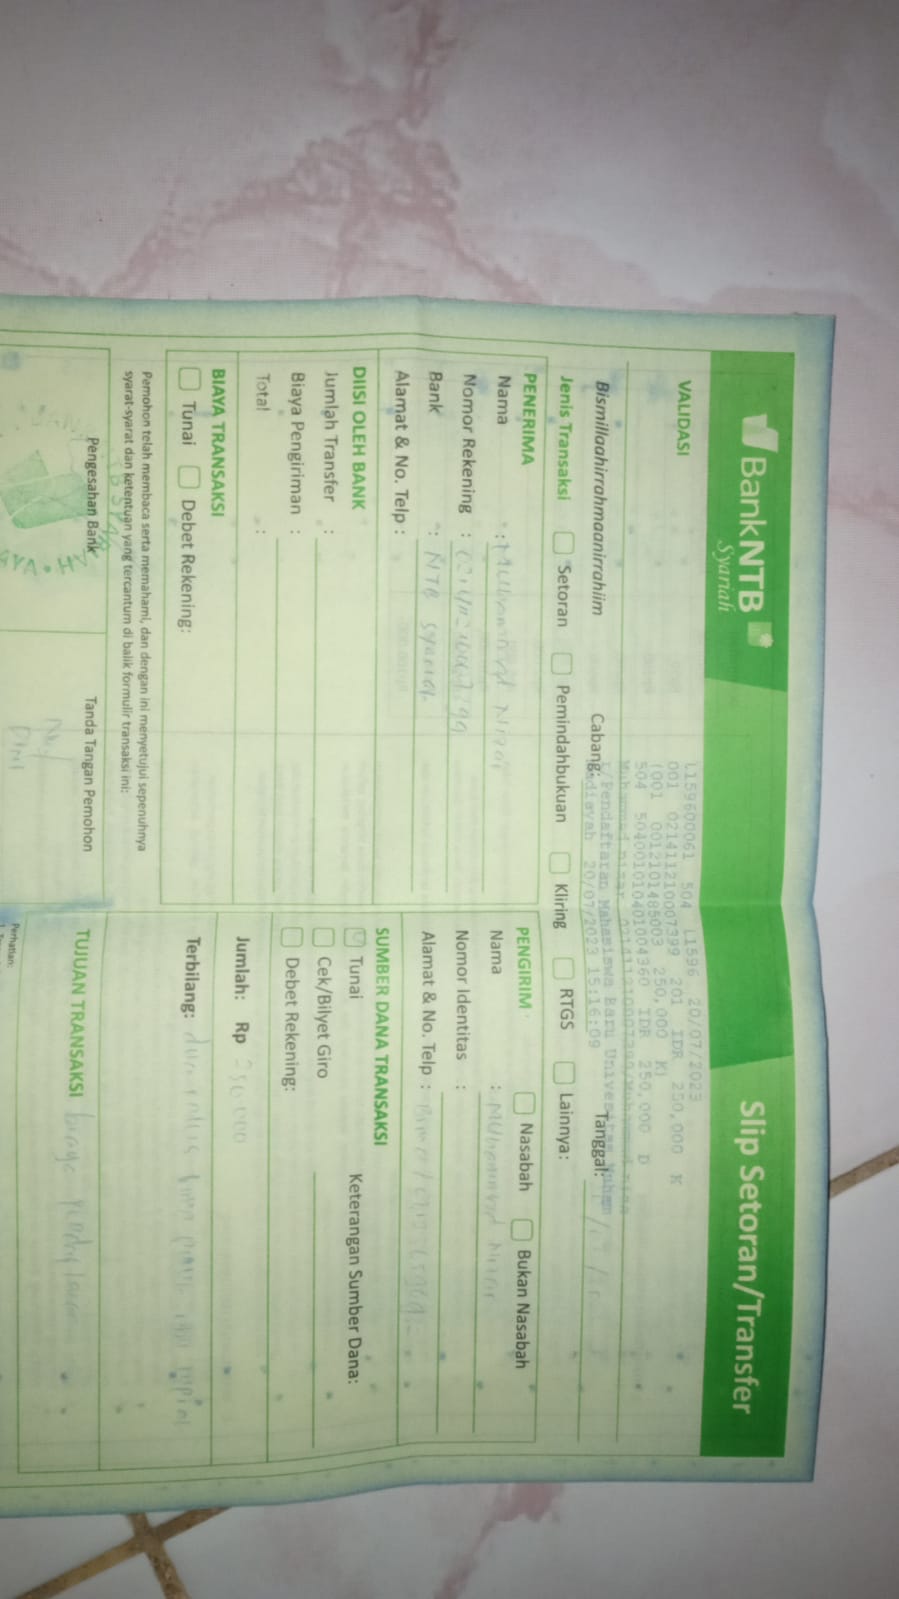 BankNTB
Syariah
Slip Setoran/Transfer
VALIDASI
L159600061 504 L1596 20/07/2023
001 021411210007399 201 IDR 250,000 K
(001 0012101485003 250,000 K)
504 504001010401004360 IDR 250,000 D
Muhammad nizar 021411210007399/Muhammad niza
r/Pendaftaran Mahasiswa Baru Universitas Muham
madiayah 20/07/2023 15:16:09
Bismillaahirrahmaanirrahiim
Cabang:
Tanggal:
Jenis Transaksi
Setoran
Pemindahbukuan
Kliring
RTGS
Lainnya:
PENERIMA
Nama :
Nomor Rekening :
Bank : NTB syariah
Alamat & No. Telp :
PENGIRIM
Nasabah
Bukan Nasabah
Nama :
Nomor Identitas :
Alamat & No. Telp :
DIISI OLEH BANK
Jumlah Transfer :
Biaya Pengiriman :
Total :
SUMBER DANA TRANSAKSI
Tunai
Keterangan Sumber Dana:
Cek/Bilyet Giro
Debet Rekening:
BIAYA TRANSAKSI
Tunai
Debet Rekening:
Jumlah: Rp 250.000
Terbilang: dua ratus lima puluh ribu rupiah
Pemohon telah membaca serta memahami, dan dengan ini menyetujui sepenuhnya
syarat-syarat dan ketentuan yang tercantum di balik formulir transaksi ini:
Pengesahan Bank
Tanda Tangan Pemohon
TUJUAN TRANSAKSI biaya
Perhatian: